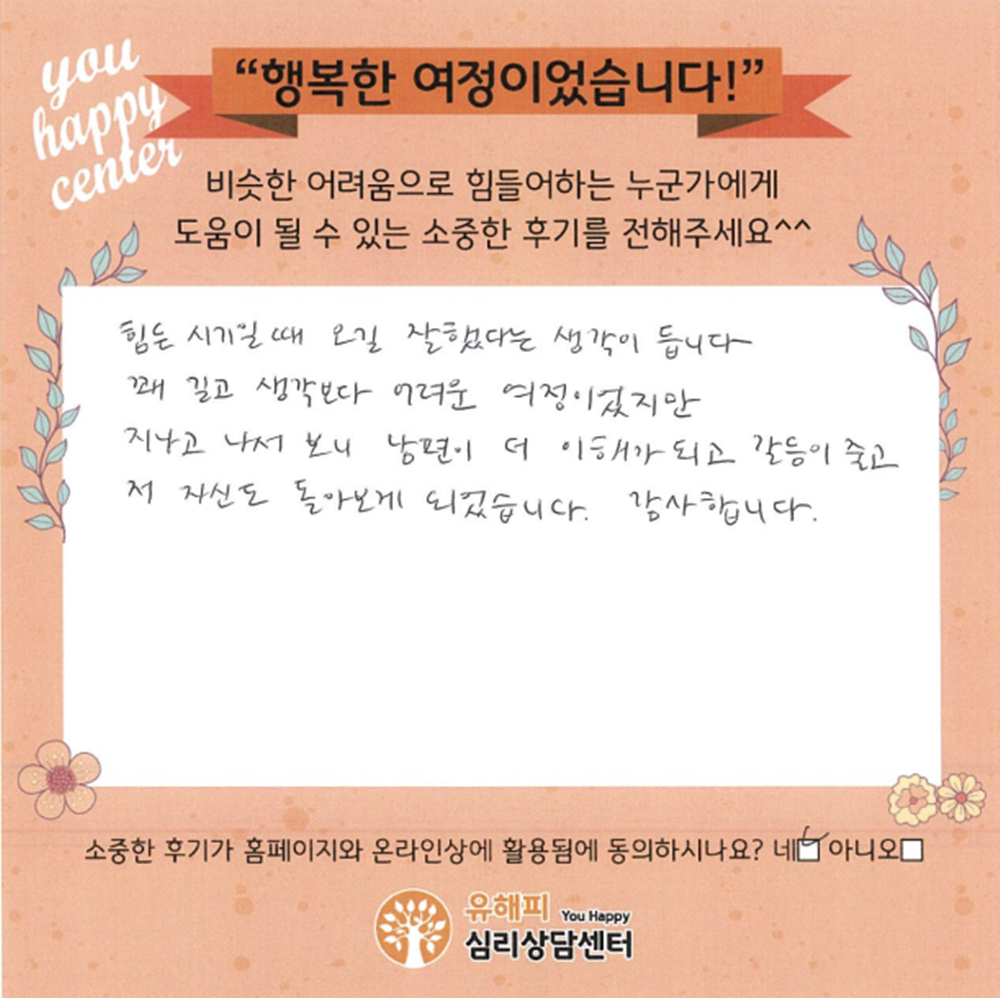 you
happy
center
“행복한 여정이었습니다!”
비슷한 어려움으로 힘들어하는 누군가에게
도움이 될 수 있는 소중한 후기를 전해주세요^^
힘든 시기일때 오길 잘했다는 생각이 듭니다
꽤 길고 생각보다 어려운 여정이었지만
지나고 나서 보니 남편이 더 이해가 되고 갈등이 줄고
저 자신도 돌아보게 되었습니다. 감사합니다.
소중한 후기가 홈페이지와 온라인상에 활용됨에 동의하시나요? 네 아니오
유해피 You Happy
심리상담센터